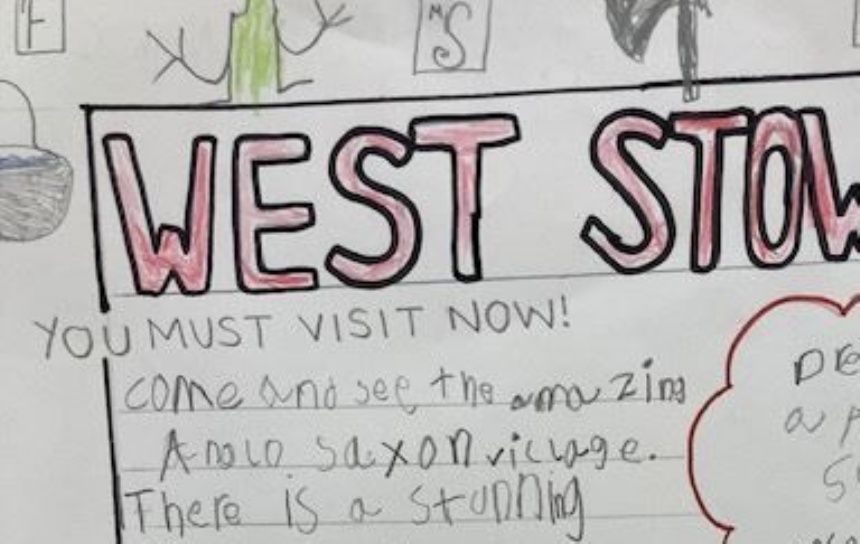 F
MS
WEST STOW
YOU MUST VISIT NOW!
come and see the amazing
Anglo saxon village.
There is a stunning
DRE
a
S